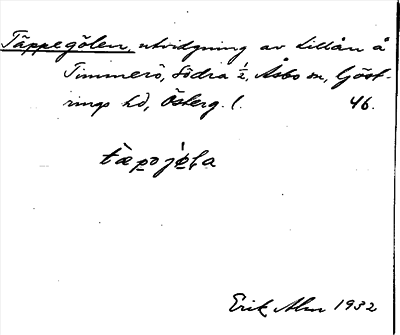 Täppegölen, utvidgning av Lillån å
Timmerö, Södra ½, Åsbo sn, Göst-
rings hd, Österg. l. 46.
tæpojɵ́la
Erik Alm 1932